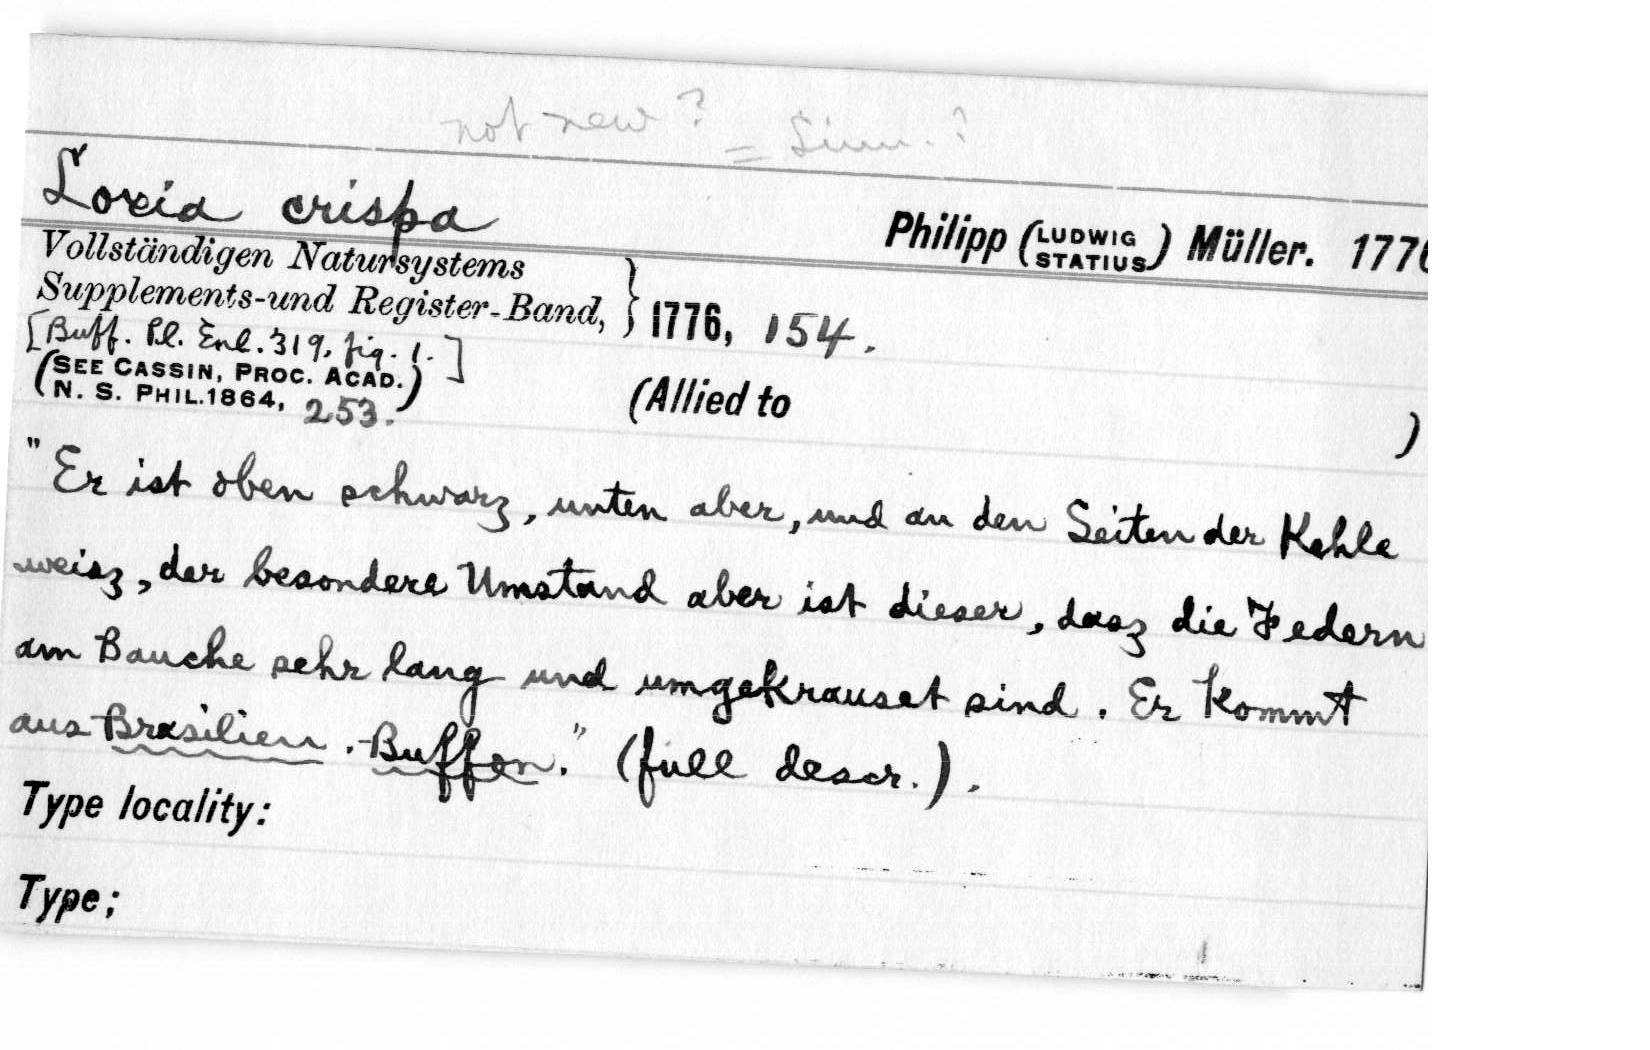 not new? = Linn.?
Loxia crispa
Philipp (LUDWIG STATIUS) Müller. 1776
Vollständigen Natursystems
Supplements-und Register-Band, } 1776, 154.
[Buff. Pl. Enl. 319, fig. 1.]
(SEE CASSIN, PROC. ACAD.
N. S. PHIL. 1864, 253.)
(Allied to )
"Er ist oben schwarz, unten aber, und an den Seiten der Kehle
weisz, der besondere Umstand aber ist dieser, dasz die Federn
am Bauche sehr lang und umgekrauset sind. Er kommt
aus Brasilien. Buffon." (full descr.).
Type locality:
Type;